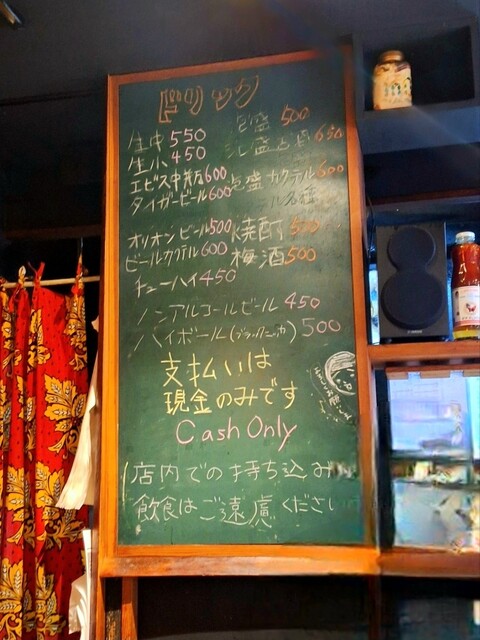 ドリンク
生中 550
生小 450
エビス中瓶 600
タイガービール 600
オリオンビール 500
ビールカクテル 600
チューハイ 450
泡盛 500
泡盛古酒 650
泡盛カクテル 600
焼酎 500
梅酒 500
ノンアルコールビール 450
ハイボール(ブラックニッカ) 500
支払いは
現金のみです
Cash Only
店内での持ち込み
飲食はご遠慮ください